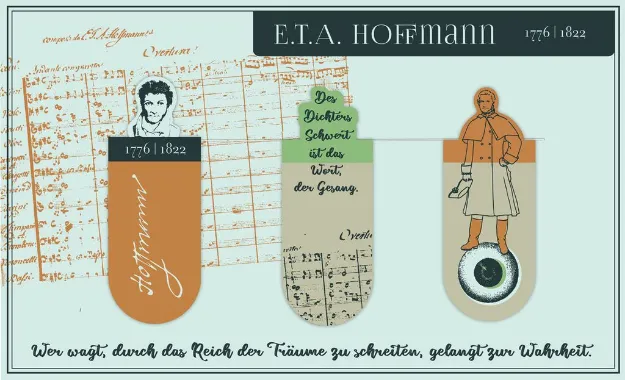 E.T.A. HOFFmann 1776 | 1822
composta da E.T.A. Hoffmann
Overtura
Andante
1776 | 1822
Hoffmann
Des
Dichters
Schwert
ist das
Wort,
der Gesang.
Wer wagt, durch das Reich der Träume zu schreiten, gelangt zur Wahrheit.